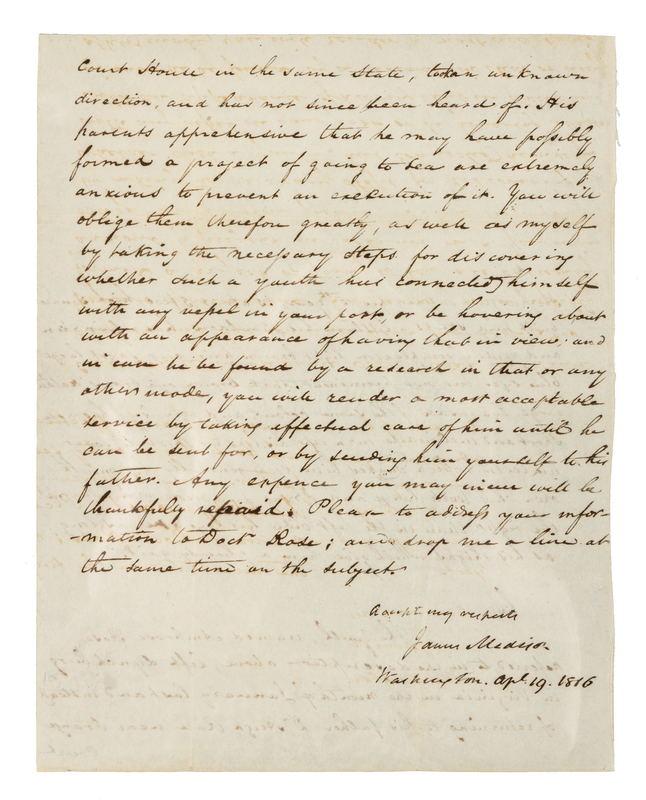 Court House in the same State, took an unknown
direction, and has not since been heard of. His
parents apprehensive that he may have possibly
formed a project of going to Sea are extremely
anxious to prevent an execution of it. You will
oblige them therefore greatly, as well as myself
by taking the necessary steps for discovering
whether such a youth has connected himself
with any vessel in your port, or be hovering about
with an appearance of having that in view; and
in case he be found by a research in that or any
other mode, you will render a most acceptable
service by taking effectual care of him until he
can be sent for, or by sending him yourself to his
father. Any expence you may incur will be
thankfully repaid. Please to address your infor-
-mation to Doctr Rose; and drop me a line at
the same time on the subject.
Accept my respects
James Madison
Washington. Apl. 19. 1816